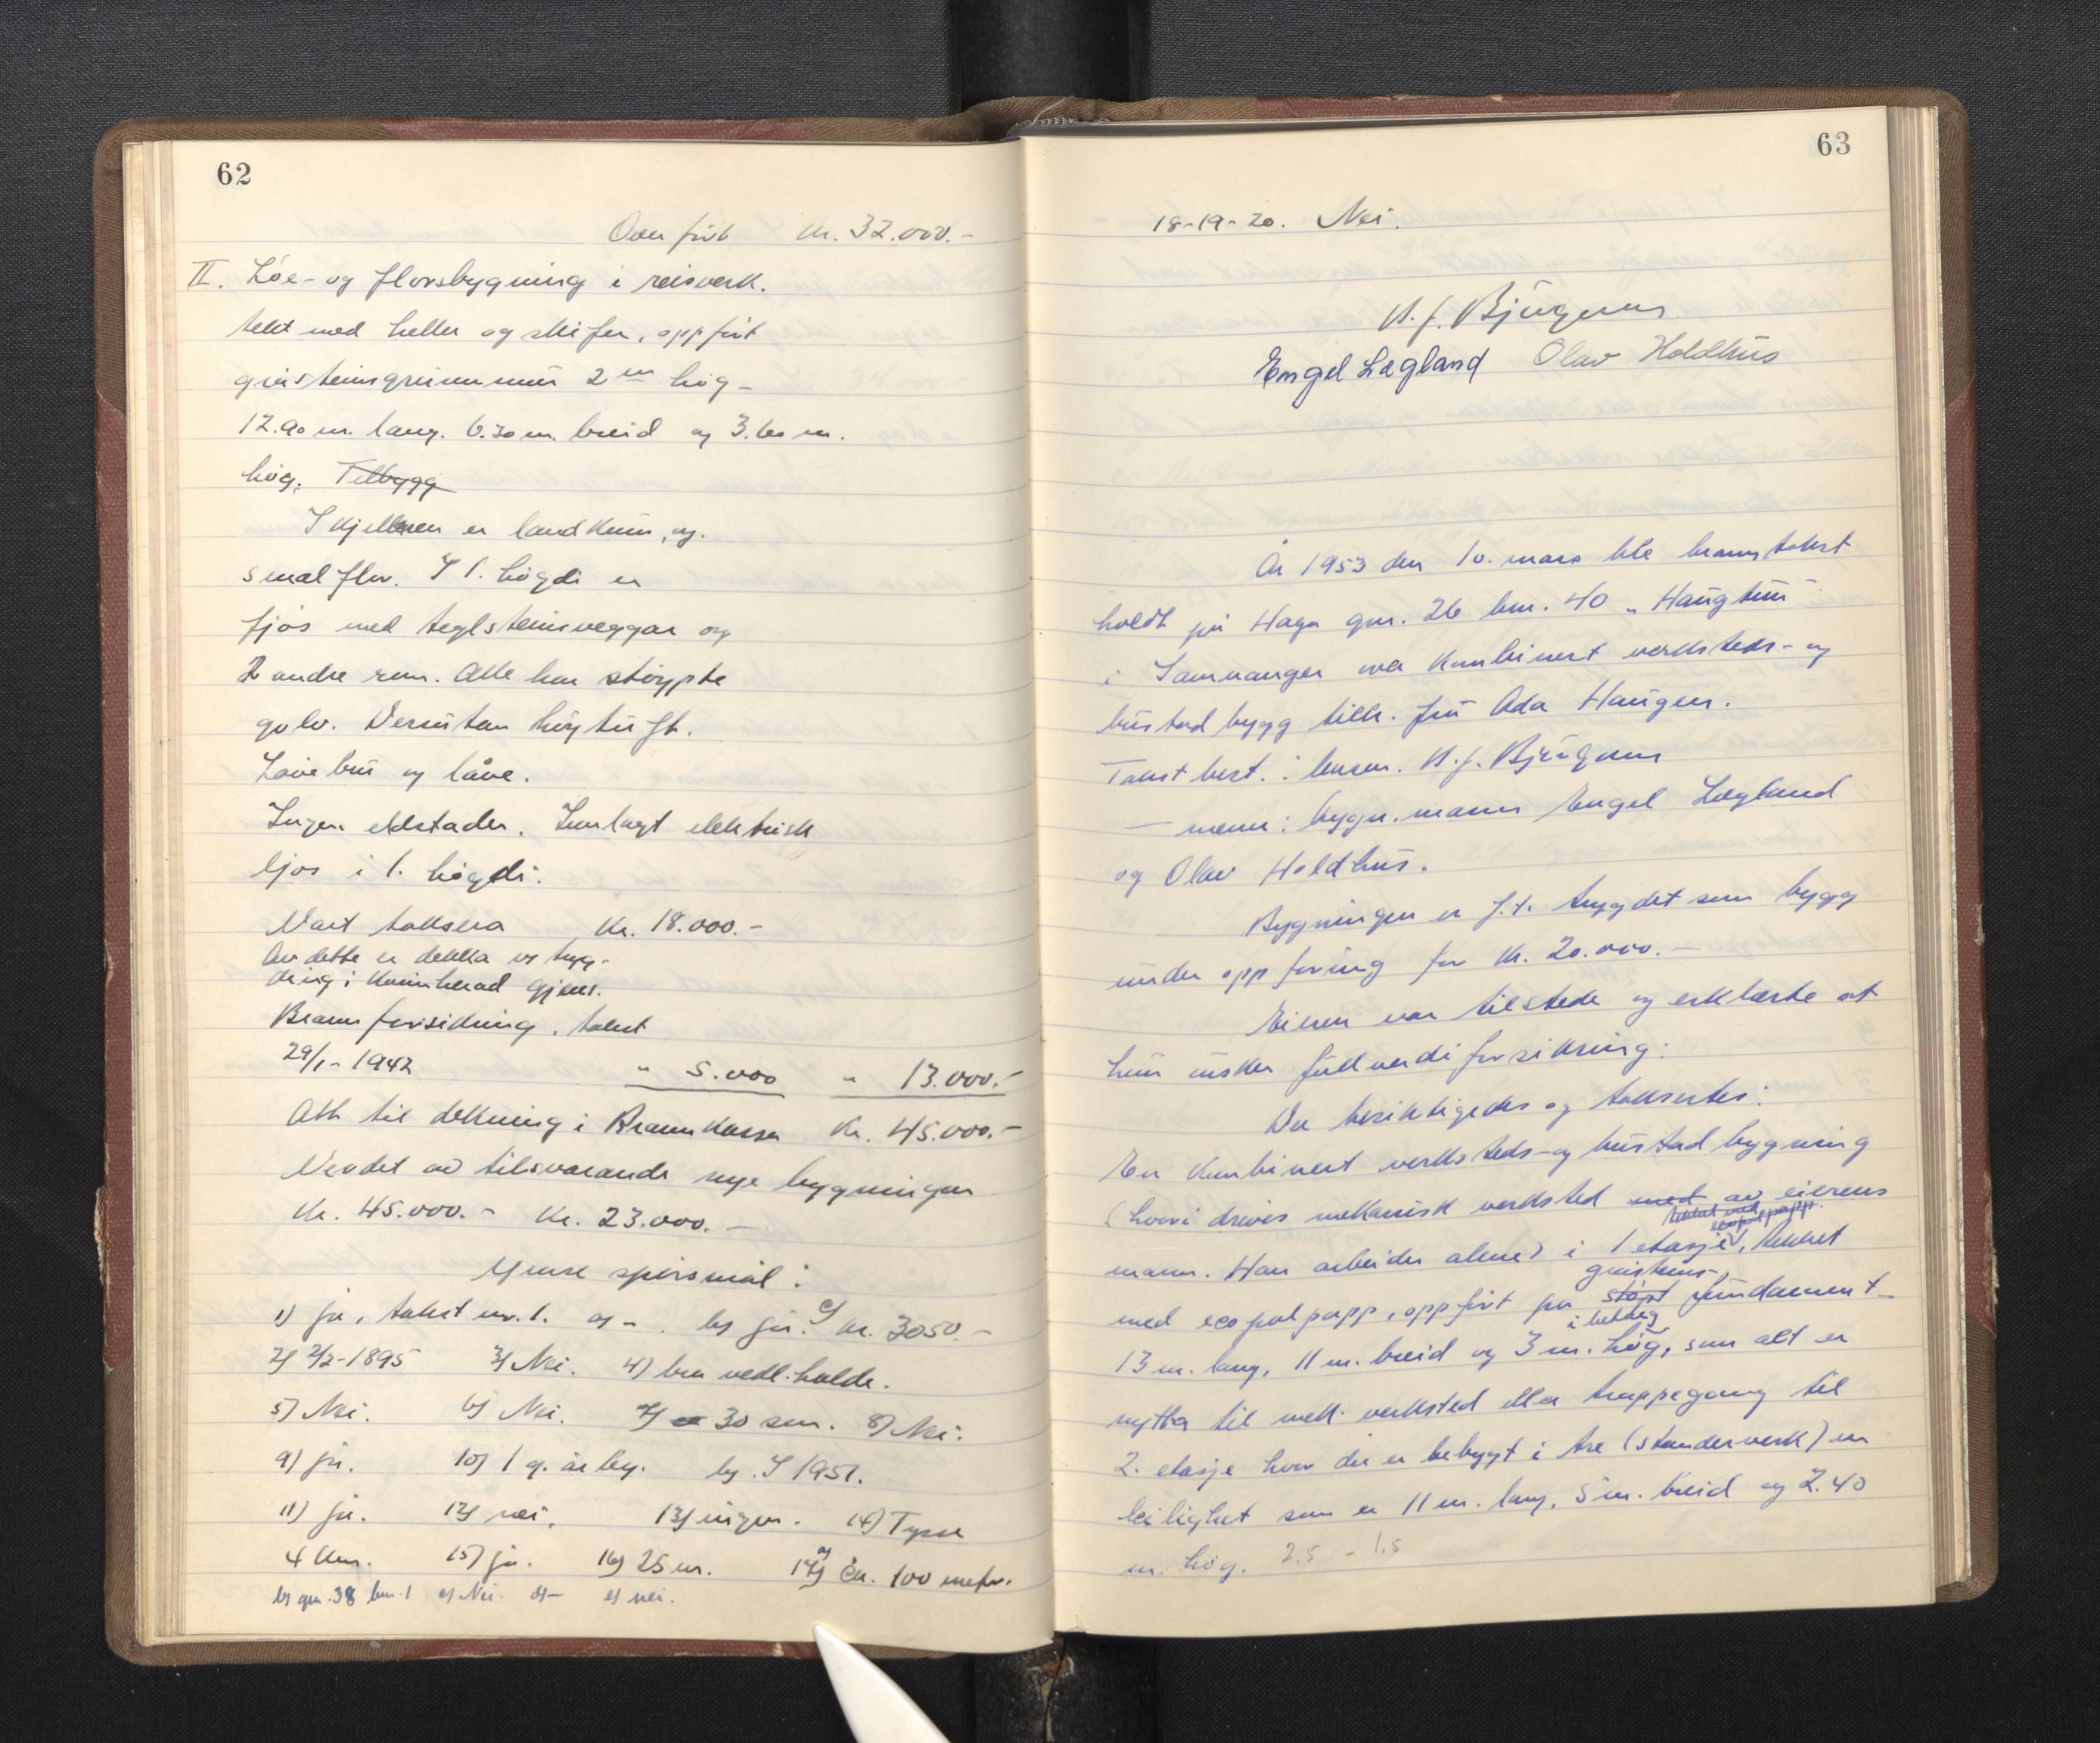 62
Overført kr. 32.000.-
II. Løe- og florsbygning i reisverk.
tekt med heller og skifer, oppført
gråsteinsgrunnmur 2 m høg -
12.90 m. lang. 6.30 m. breid og 3.60 m.
høg. Tilbygg
I kjellaren er landkum, og
smalflor. I 1. høgdi er
fjøs med teglsteinsveggar og
2 andre rom. Alle har støypte
golv. Desutan høytuft.
Løvebu og låve.
Ingen eldstader. Innlagt elektrisk
ljos i 1. høgdi.
Vart taksera kr. 18.000.-
Av dette er dekka ved tryg-
ding i Kvinnherad gjens.
Brannforsikring, takst
29/1- 1942 " 5.000 " 13.000.-
Att til dekning i Brannkassa kr. 45.000.-
Verdet av tilsvarande nye bygningar
kr. 45.000.- kr. 23.000.-
Ymse spørsmål:
1) ja, takst nr. 1. a) - . b) ja. c) kr. 3050.-
2) 2/2-1895 3) Nei. 4) bra vedl.halde.
5) Nei. 6) Nei. 7) 30 sm. 8) Nei.
9) ja. 10) 1 g. årleg. b) I 1951.
11) ja. 12) nei. 13) ingen. 14) Tysse
4 km. 15) ja. 16) 25 m. 17) a) Ca. 100 meter.
b) gnr. 38 bnr. 1 c) Nei. d) - e) nei.
63
18-19-20. Nei.
N. J. Bjørgum
Engel Lægland Olav Holdhus
År 1953 den 10. mars ble branntakst
holdt på Haga gnr. 26 bnr. 40 "Haugtun"
i Samnanger over kombinert verksteds- og
bustadbygg tilh. fru Ada Haugen.
Takst best.: lensm. N. J. Bjørgum
— menn: bygn.mann Engel Lægland
og Olav Holdhus.
Bygningen er f.t. trygdet som bygg
under oppføring for kr. 20.000.-
Eieren var tilstede og erklærte at
hun ønsker fullverdiforsikring:
Det besiktigedes og taksertes:
En kombinert verksteds- og bustadbygning
(hvori drives mekanisk verksted med av eierens
tekket med
ecopalpapp.
mann. Han arbeider alene) i 1 etasje, tekket
gråsteins-
med ecopalpapp, oppført på støpt fundament -
i betong
13 m. lang, 11 m. breid og 3 m. høg, som alt er
nytta til mek. verksted eller trappegang til
2. etasje hvor der er bebygt i tre (standerverk) en
leilighet som er 11 m. lang, 5 m. breid og 2.40
m. høg. 2.5 - 1.5